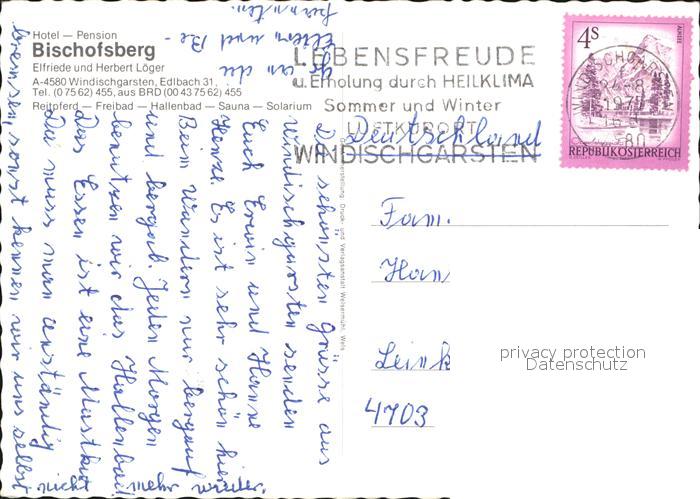 Hotel — Pension
Bischofsberg
Elfriede und Herbert Löger
A-4580 Windischgarsten, Edlbach 31,
Tel. (0 75 62) 455, aus BRD (00 43 75 62) 455
Reitpferd — Freibad — Hallenbad — Sauna — Solarium
LEBENSFREUDE
u. Erholung durch HEILKLIMA
Sommer und Winter
LUFTKURORT
WINDISCHGARSTEN
4S
ALMSEE
REPUBLIK ÖSTERREICH
Deutschland
Fam.
Han
Leink
4703
privacy protection
Datenschutz
Herstellung: Druck- und Verlagsanstalt Welsermühl, Wels
Die schönsten Grüsse aus
Windischgarsten senden
Euch Erwin und Hanne
Herzl. Es ist sehr schön hier.
Beim Wandern nur bergauf
und bergab. Jeden Morgen
benutzen wir das Hallenbad
Das Essen ist eine Mastkur
Da muss man anständig
bremsen sonst kennen wir uns selbst
nicht mehr wieder.
an die
Eltern und Be-
kannten.